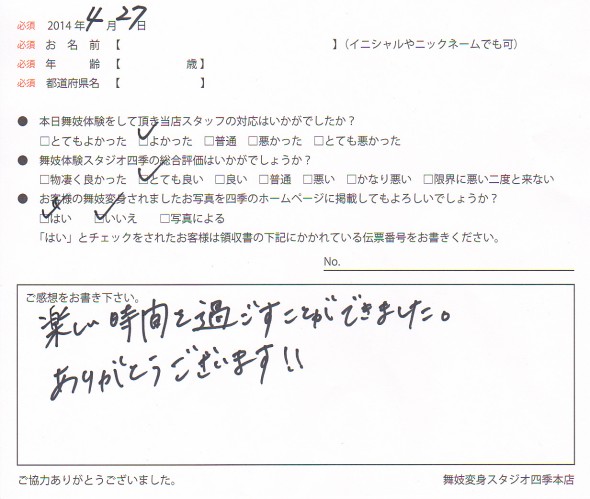 必須 2014年4月27日
必須 お 名 前【 】（イニシャルやニックネームでも可）
必須 年 齢【 歳】
必須 都道府県名【 】
● 本日舞妓体験をして頂き当店スタッフの対応はいかがでしたか？
□とてもよかった □よかった □普通 □悪かった □とても悪かった
● 舞妓体験スタジオ四季の総合評価はいかがでしょうか？
□物凄く良かった □とても良い □良い □普通 □悪い □かなり悪い □限界に悪い二度と来ない
● お客様の舞妓変身されましたお写真を四季のホームページに掲載してもよろしいでしょうか？
□はい □いいえ □写真による
「はい」とチェックをされたお客様は領収書の下記にかかれている伝票番号をお書きください。
No.
ご感想をお書き下さい。
楽しい時間を過ごすことができました。
ありがとうございます!!
ご協力ありがとうございました。 舞妓変身スタジオ四季本店